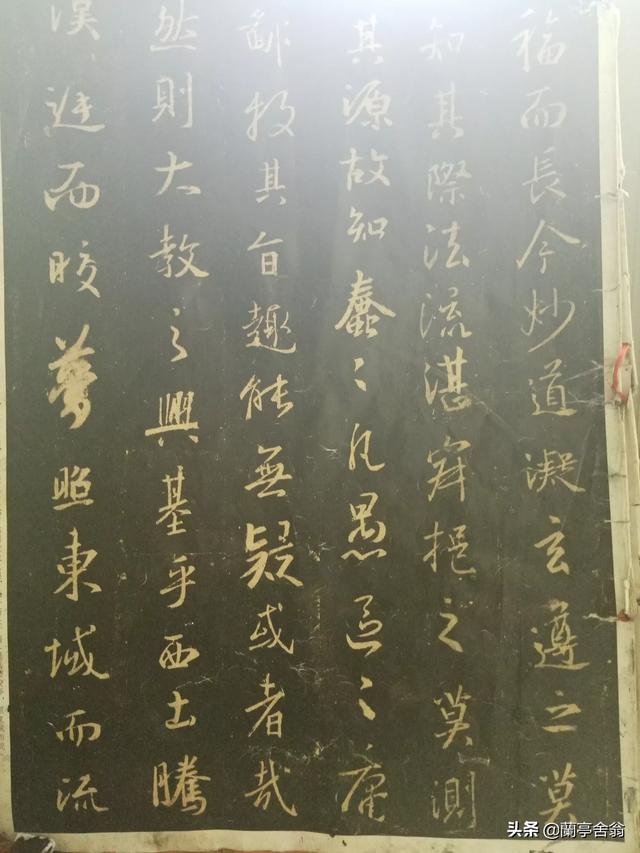 福而長今妙道凝玄遵之莫
知其際法流湛寂挹之莫測
其源故知蠢々凡愚區々庸
鄙投其旨趣能無疑或者哉
然則大教之興基乎西土騰
漢庭而皎夢照東域而流
头条 @蘭亭舍翁